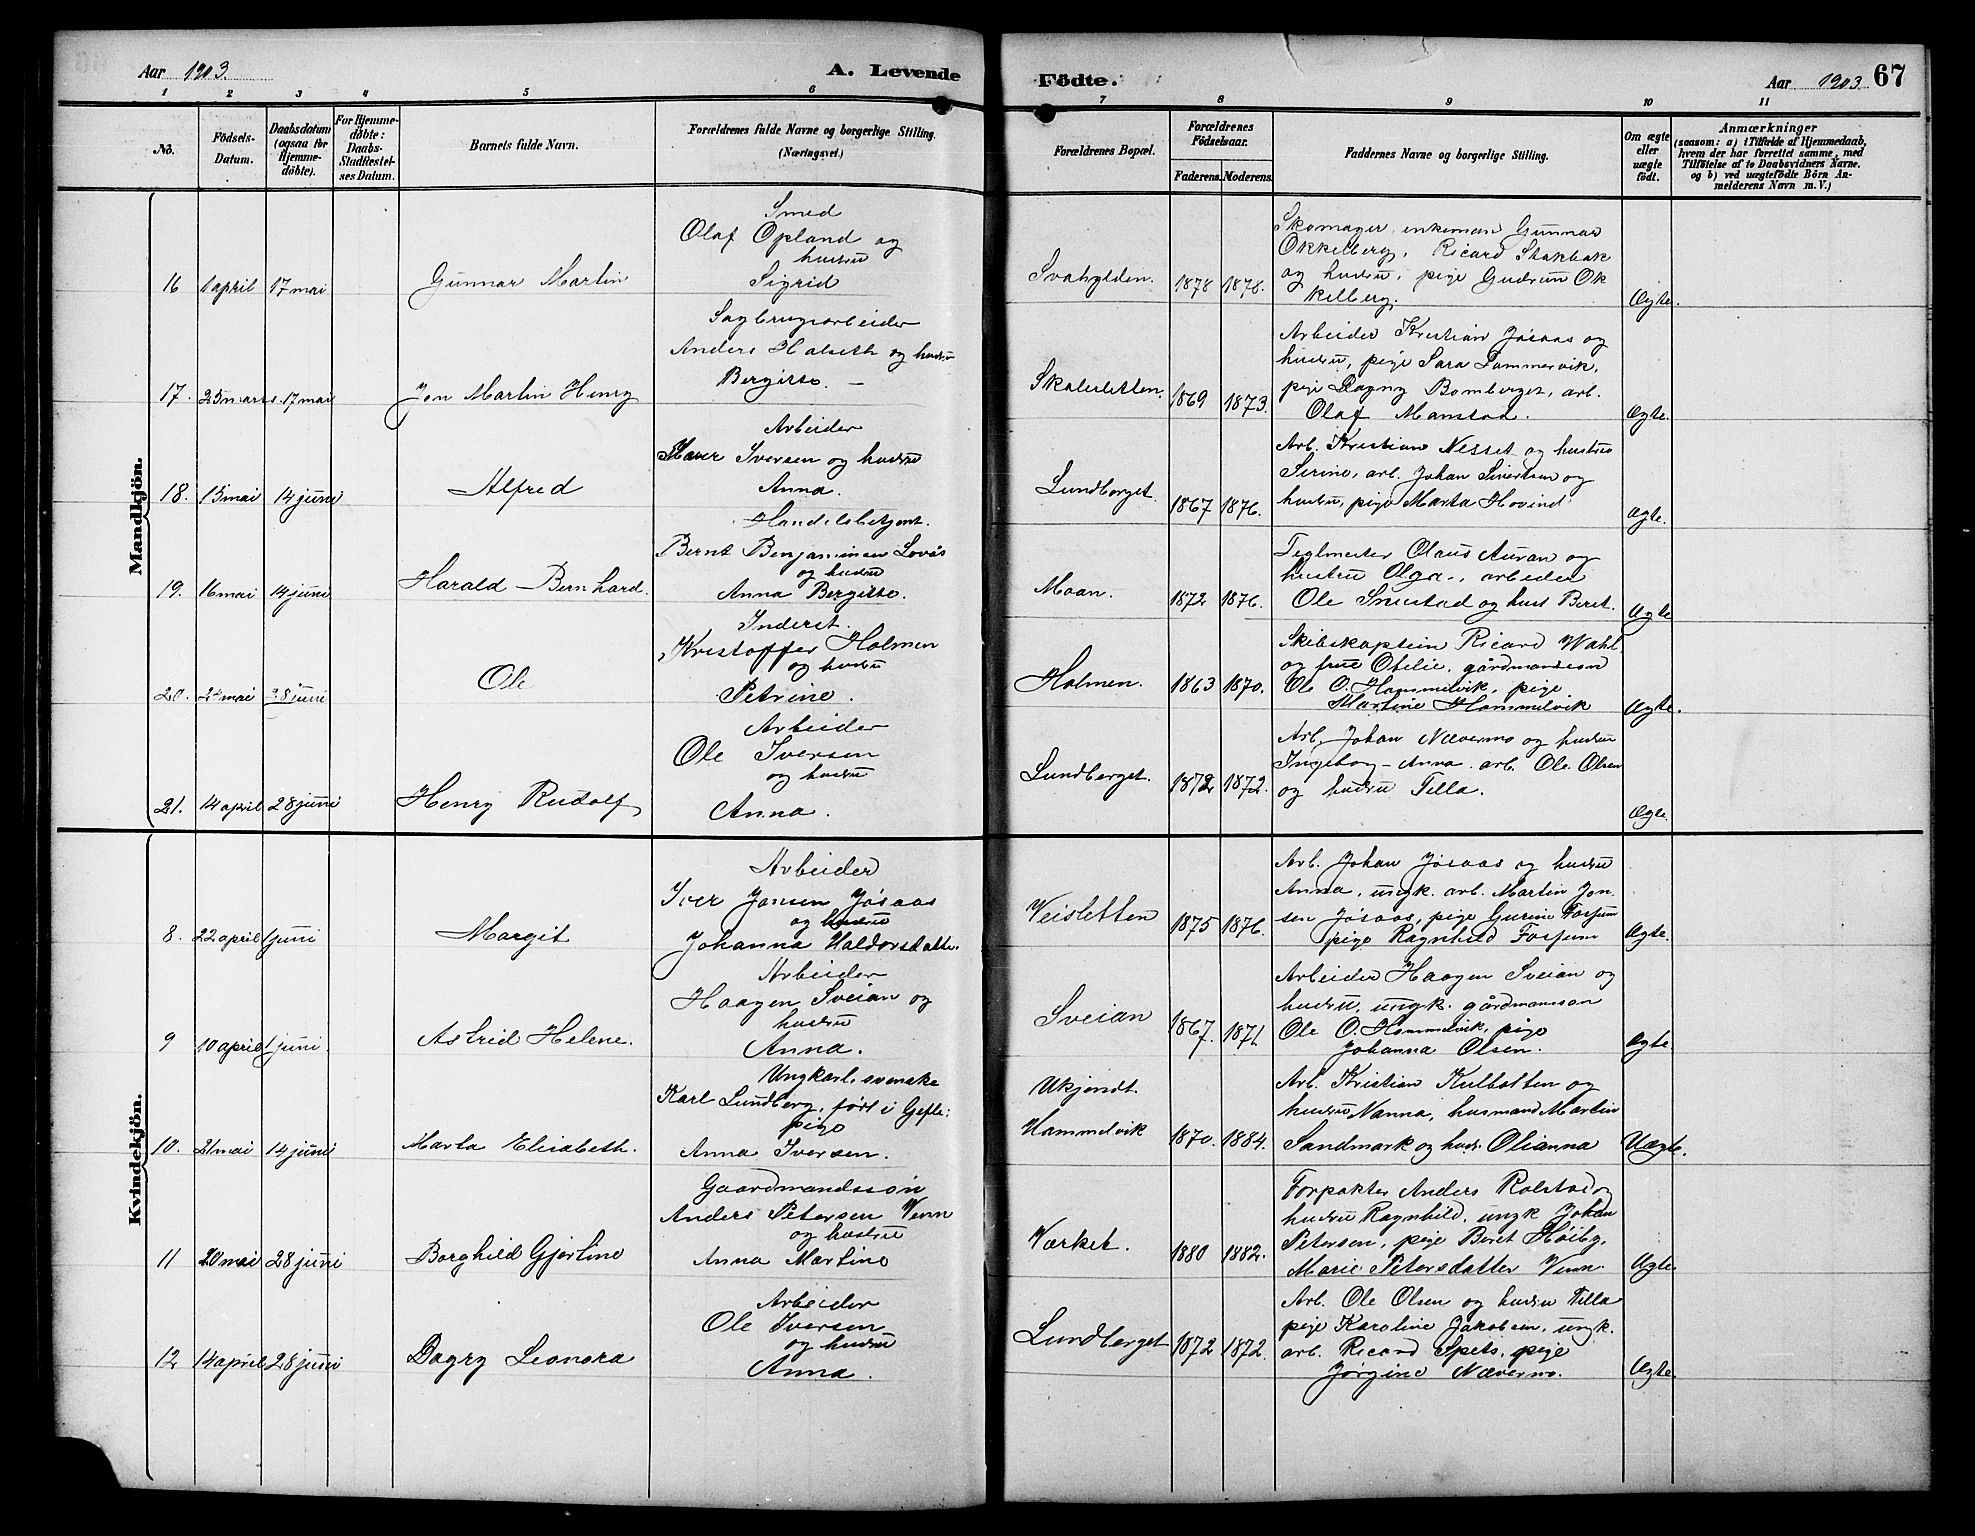 Aar 1903.
A. Levende
Födte.
Aar 1903.
67
1 2 3 4 5 6 7 8 9 10 11
No.
Födsels-
Datum.
Daabsdatum
(ogsaa for
Hjemme-
döbte).
For Hjemme-
döbte:
Daabs-
Stadfæstel-
ses Datum.
Barnets fulde Navn.
Forældrenes fulde Navne og borgerlige Stilling.
(Næringsvei.)
Forældrenes Bopæl.
Forældrenes
Födselsaar.
Faderens. Moderens.
Faddernes Navne og borgerlige Stilling.
Om ægte
eller
uægte
födt.
Anmærkninger
(saasom: a) i Tilfælde af Hjemmedaab,
hvem der har forrettet samme, med
Tilföielse af to Daabsvidners Navne.
og b) ved uægtefödte Börn An-
melderens Navn m. V.)
Mandkjön.
16 1 april 17 mai
Gunnar Martin
Smed
Olaf Opland og
hustru
Sigrid
1878 1878.
Skomager, enkeman Gunnar
Okkelberg, Ricard Stakbak
og hustru, pige Gudrun Ok
kelberg.
Ægte.
17. 17 mai
Jon Martin Henry
Sagbrugsarbeider
Anders Halseth og hustru
Bergitte. –
Skalsletten. 1869 1873.
Arbeider Kristian Jøsaas og
hustru, pige Sara Sommervik,
pige Dagny Bomberget, arb.
Olaf Mamstad.
Ægte.
18. 13 mai 14 juni
Alfred
Arbeider
Iversen og hustru
Anna.
Lundberget. 1867 1876.
Arb. Kristian Nesset og hustru
Serine, arb. Johan Sivertsen og
hustru, pige Marta Hovind
Ægte.
19. 16 mai 14 juni
Harald Bernhard.
Handelsbetjent.
Bernt Benjaminsen Lovås
og hustru
Anna Bergitte.
Moan. 1872 1876.
Teglmester Olaus Auran og
hustru Olga, arbeider
Ole og hust Beret.
Ægte
20. 28 juni
Ole
Inderst.
Kristoffer Holmen
og hustru
Petrine.
Holmen. 1863 1870.
Skibskaptein Ricard Wahl
og frue Otelie, gårdmandssøn
Ole O. Hammelvik, pige
Martine Hammelvik
Ægte.
21. 14 april 28 juni
Henry Rudolf
Arbeider
Ole Iversen
og hustru
Anna.
Lundberget. 1872 1872.
Arb. Johan Nævermo og hustru
Ingebog – Anna. arb. Ole Olsen
og hustru Tilla.
Ægte.
Kvindekjön.
8. 22 april 1 juni
Margit
Arbeider
Iver Jonsen Jøsaas
og hustru
Johanna Haldorsdatter.
Veisletten 1875 1876.
Arb. Johan Jøsaas og hustru
Anna, ungk. arb. Martin Jon-
sen Jøsaas, pige Gurine Forfum
pige Ragnhild Forfum
Ægte.
9 10 april 1 juni.
Astrid Helene.
Arbeider
Haagen Sveian og
hustru
Anna.
Sveian 1867. 1871.
Arbeider Haagen Sveian og
hustru, ungk. gårdmanssøn
Ole O. Hammelvik, pige
Johanna Olsen.
Ægte.
10. 21 mai 14 juni
Marta Elisabeth.
Ungkarl. svenske
Karl Lundberg, født i Gefle;
pige
Anna Iversen.
Ukjendt.
Hammelvik 1870. 1884.
Arb. Kristian Kulbotten og
hustru Nanna, husmand Martin
Sandmark og hustr. Olianna
Uægte.
11 20 mai 28 juni
Borghild Gjertine
Gaardmandssøn
Anders Petersen Venn
og hustru
Anna Martine
Værket. 1880 1882.
Forpakter Anders Rolstad og
hustru Ragnhild. ungk Johan
Petersen, pige Beret Høiby,
Marie Petersdatter Venn.
Ægte.
12 14 april 28 juni
Dagny Leonora
Arbeider
Ole Iversen
og hustru
Anna.
Lundberget 1872 1872.
Arb. Ole Olsen og hustru Tilla
pige Karoline Jakobsen, ungk.
arb. Ricard Spets, pige
Jørgine Nævermo.
Ægte.